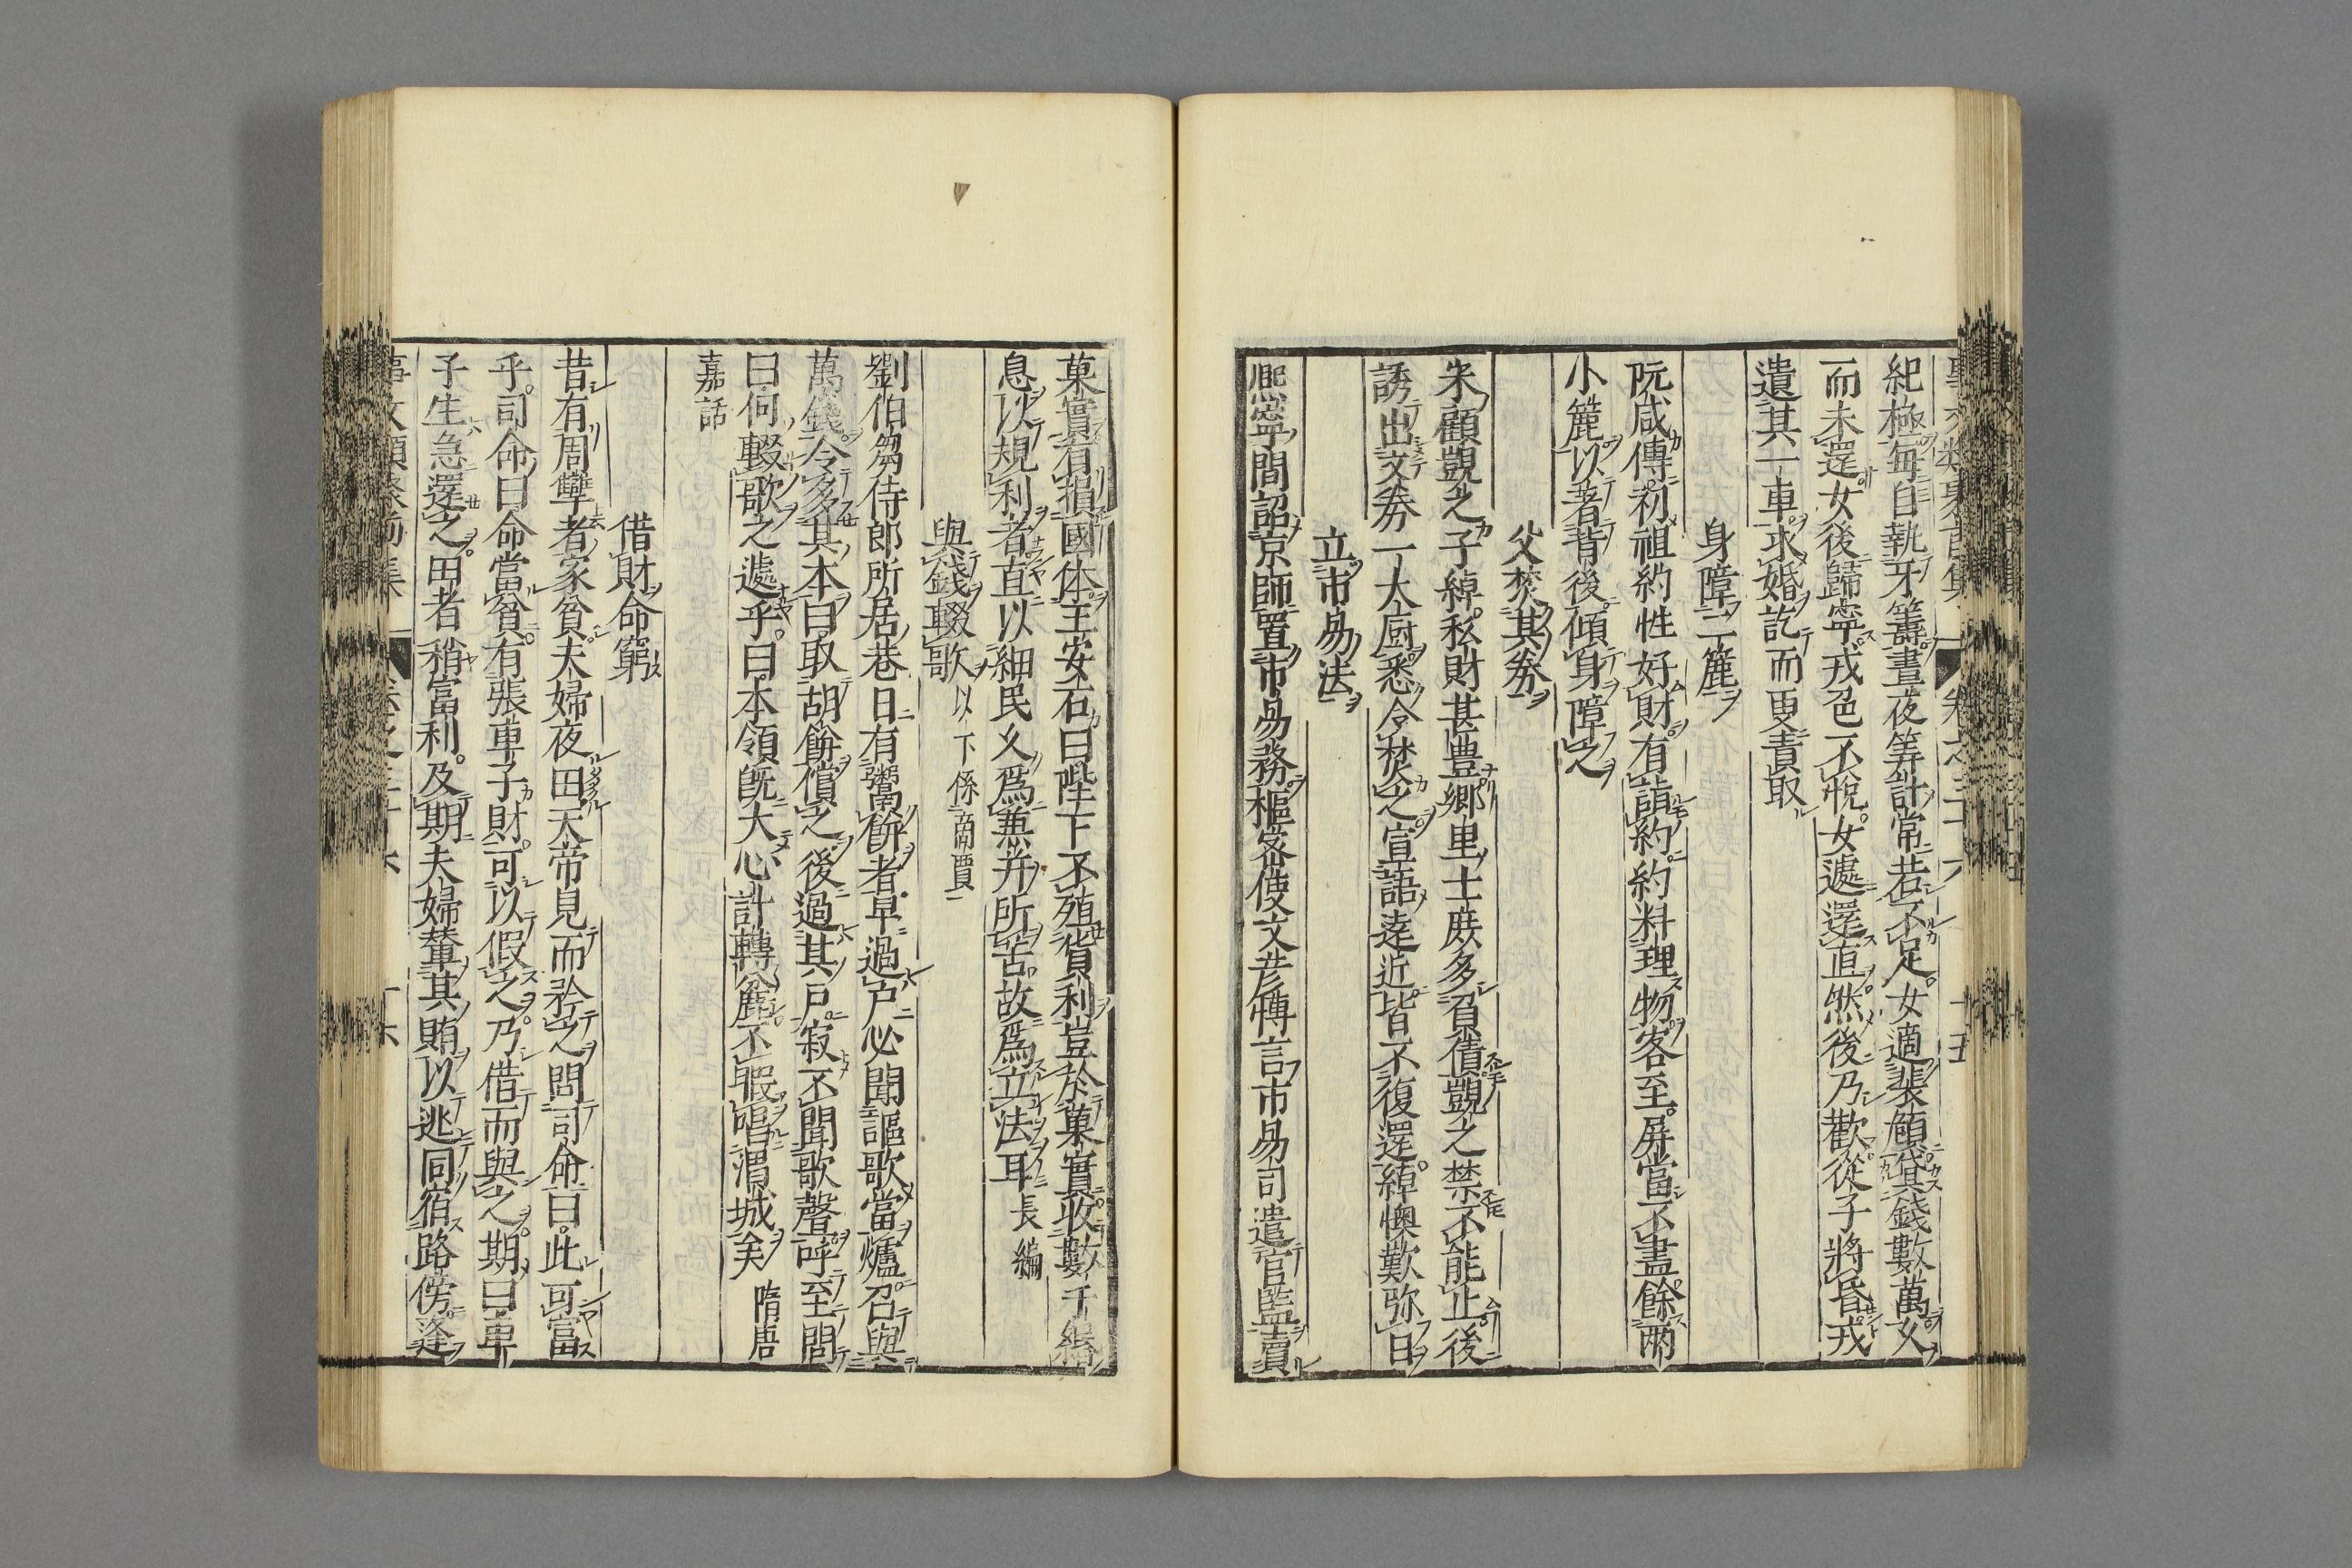 紀極每自執牙籌晝夜筭計常若不足女適裴頠貸錢數萬久
而未還女後歸寧戎色不悅女遽還直然後乃歡從子將昏戎
遺其一車求婚訖而更責取
身障二簏
阮咸傳初祖約性好財有詣約約料理物客至屏當不盡餘兩
小簏以著背後傾身障之
父焚其券
朱顧覬之子綽私財甚豊鄉里士庶多負債覬之禁不能止後
誘出文券一大厨悉令焚之宣語遠近皆不復還綽懊歎弥日
立市易法
熈寧間詔京師置市易務樞密使文彦博言市易司遣官監賣
菓實有損國体王安石曰陛下不殖貨利豈於菓實收數千緡
息以規利者直以細民久爲兼并所苦故爲立法耳 長編
與錢輟歌 以下係商賈
劉伯芻侍郎所居巷日有鬻餅者早過户必聞謳歌當爐召與
萬錢令多其本曰取胡餅償之後過其戶寂不聞歌聲呼至問
曰何輟歌之遽乎曰本領旣大心計轉麁不暇唱渭城矣 隋唐
嘉話
借財命窮
昔有周犨者家貧夫婦夜田天帝見而矜之問司命曰此可富
乎司命曰命當貧有張車子財可以假之乃借而與之期曰車
子生急還之田者稍富利及期夫婦輦其賄以逃同宿路傍逢